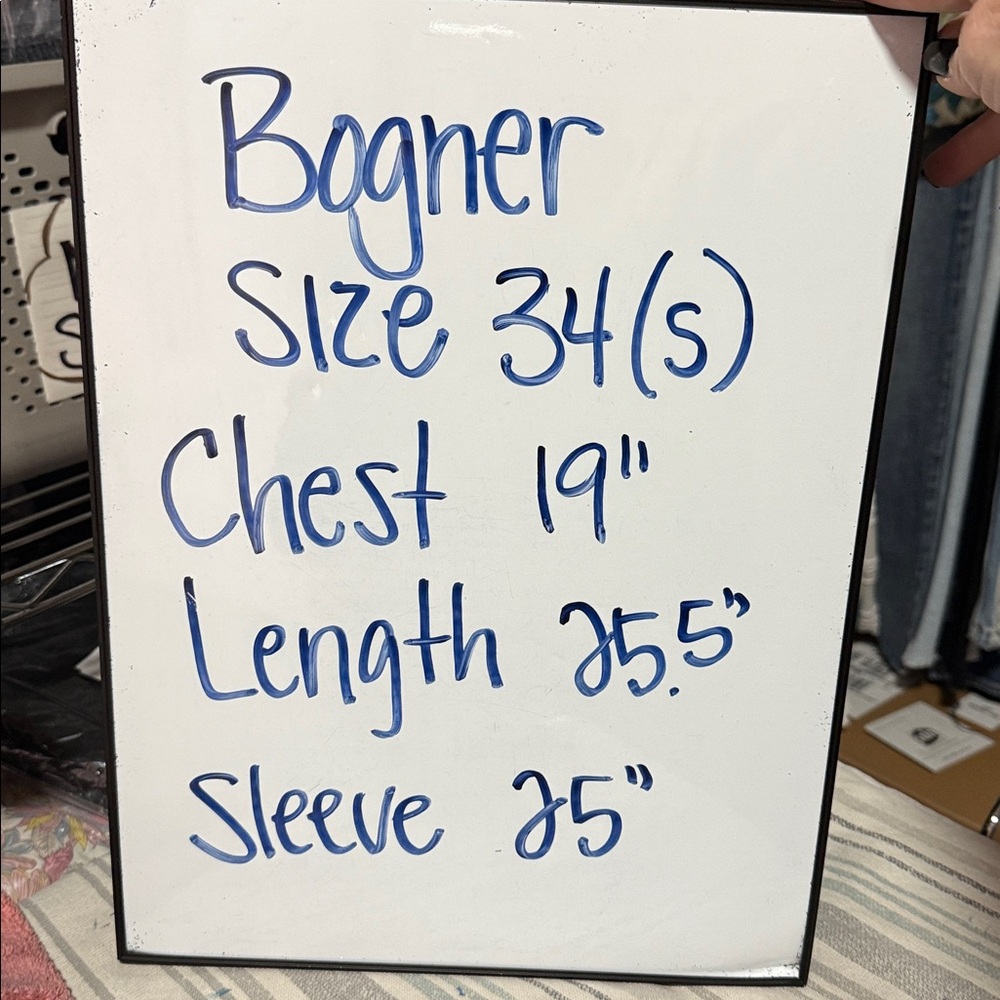 Bogner
Size 34 (s)
Chest 19"
Length 25.5"
Sleeve 25"